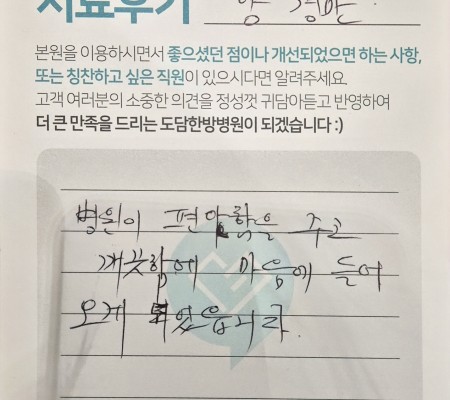 치료후기
본원을 이용하시면서 좋으셨던 점이나 개선되었으면 하는 사항,
또는 칭찬하고 싶은 직원이 있으시다면 알려주세요.
고객 여러분의 소중한 의견을 정성껏 귀담아듣고 반영하여
더 큰 만족을 드리는 도담한방병원이 되겠습니다 :)
병원이 편안함을 주고
깨끗함에 마음에 들어
오게 되었습니다.